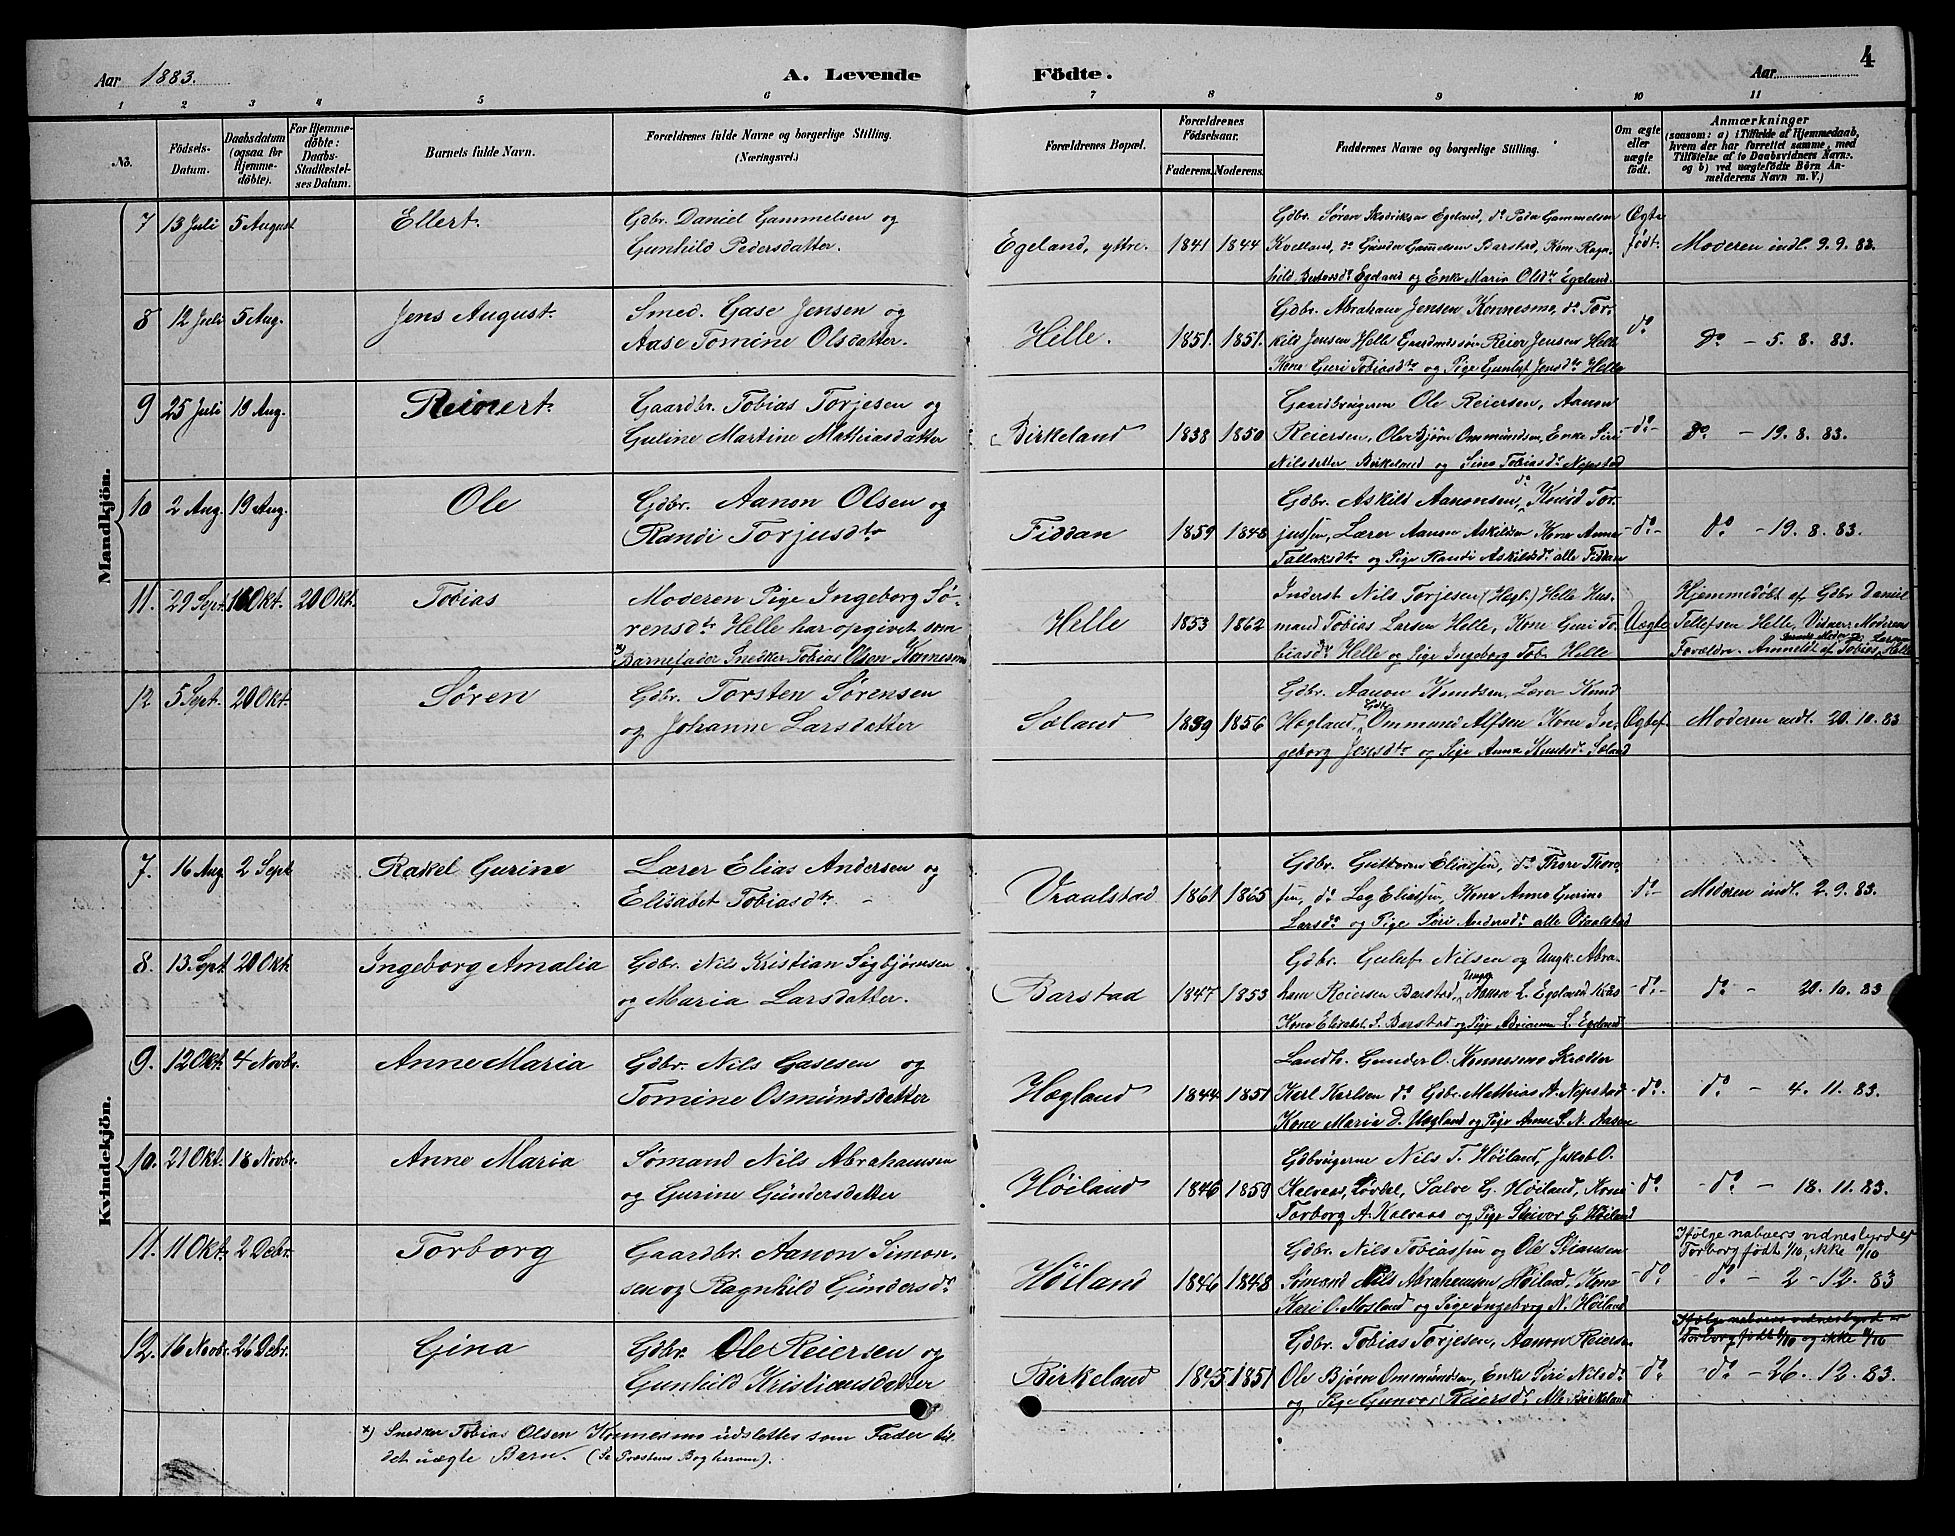 Aar 1883.
A. Levende Födte.
Aar
4
1 2 3 4 5 6 7 8 9 10 11
No.
Födsels-Datum.
Daabsdatum (ogsaa for Hjemme-döbte).
For Hjemme-döbte: Daabs-Stadfæstel-ses Datum.
Barnets fulde Navn.
Forældrenes fulde Navne og borgerlige Stilling.
(Næringsvei.)
Forældrenes Bopæl.
Forældrenes Födselsaar.
Faderens. Moderens.
Faddernes Navne og borgerlige Stilling.
Om ægte eller uægte födt.
Anmærkninger
(saasom: a) i Tilfælde af Hjemmedaab, hvem der har forrettet samme, med Tilföielse af to Daabsvidners Navne, og b) ved uægtefödte Börn An-melderens Navn m. V.)
Mandkjön.
7 13 Juli 5 August Ellert.
Gdbr. Daniel Gammelsen og
Gunhild Pedersdatter.
Egeland, yttre. 1841 1844
Gdbr. Søren Egeland, do Peder Gammelsen
Kvelland, do Gunder Gamelsen Barstad, Kone Ragn-
hild Egeland og Enke Maria Olsdtr Egeland.
Ægte født.
Moderen indl. 9.9.83.
8 12 Juli 5 Aug. Jens August.
Smed. Gase Jensen og
Aase Tomine Olsdatter.
Helle. 1851. 1851.
Gdbr. Abraham Jensen Konnesmo, do Tor-
kild Jensen Helle Gaardmandssøn Reier Jensen Helle
Kone Guri Tobiasdtr og Pige Gunlaf Jensdtr Helle
do
do - 5.8.83.
9 25 Juli 19 Aug. Reinert.
Gaardbr. Tobias Torjesen og
Guline Martine Mathiasdatter
Birkeland 1838 1850
Gaardbrugerne Ole Reiersen, Aanon
Reiersen, Ole Bjørn Ommundsen, Enke Siri
Nilsdatter Birkeland og Sina Tobiasdr Nepstad
-do-
do - 19.8.83.
10 2 Aug. 19 Aug. Ole
Gdbr. Aanon Olsen og
Randi Torjusdtr
Fiddan 1859 1848
Gdbr. Askild Aanonsen, do Knud Tor-
jussen, Lærer Aanon Askildsen Kone Anne
Tallaksdtr og Pige Randi Askildsdr alle Fiddan
-do-
do - 19.8.83.
11. 29 Sept. 16 Okt. 20 Okt. Tobias
Moderen Pige Ingeborg Sø-
rensdtr Helle har opgivet som
x) Barnefader Snedker Tobias Olsen Konnesmo
Helle 1853 1862
Inderst Nils Torjesen (Hegl.) Helle Hus-
mand Tobias Larsen Helle, Kone Guri To-
biasdr Helle og Pige Ingeborg Tob. Helle
Uægte
Hjemmedøbt af Gdbr Daniel
Tellefsen Helle, Vidner: Moderens
Forældre. Anmeldt af Tobias Larsen Helle
12 5 Sept. 20 Okt. Søren
Gdbr. Torsten Sørensen
og Johanne Larsdatter
Søland 1839 1856
Gdbr. Aanon Knudsen, Lærer Knud
Hægland, Gdbr. Ommund Alfsen Kone In-
geborg Jensdtr og Pige Anna Knudsdr Søland
Ægtef.
Moderen indl. 20.10.83
Kvindekjön.
7. 16 Aug 2 Sept Rakel Gurine
Lærer Elias Andersen og
Elisabet Tobiasdtr -
Vraalstad 1861 1865
Gdbr. Guttorm Eliassen, do Thore Thore-
sen, do Log Eliassen, Kone Anne Gurine
Larsdr og Pige Siri Andersdr alle Vraalstad
do-
Moderen indl. 2.9.83.
8. 13. Sept 20 Okt Ingeborg Amalia
Gdbr. Nils Kristian Sigbjørnsen
og Maria Larsdatter.
Barstad 1847 1853
Gdbr. Guluf Nilsen og Ungk. Abra-
ham Reiersen Barstad, Ungk. L. Egeland
Kone Elisabet S. Barstad og Pige Adriana L. Egeland
-do-
do - 20.10.83
9. 12 Okt. 4 Novbr. Anne Maria
Gdbr. Nils Gasesen og
Tomine Osmundsdatter
Hægland 1844 1851
Landh. Gunder O. Konnesmo Kræmmer
Karl Karlsen do Gdbr. Mathias A. Nepstad
Kone Maria D. Hægland og Pige Anne S. N. Aasen
-do-
do - 4.11.83.
10. 21 Okt. 18 Novbr. Anne Maria
Sømand Nils Abrahamsen
og Gurine Gundersdatter
Høiland 1846 1859
Gdbrugerne Nils T. Høiland, Jakob O.
Kalvaas, Løvdal, Salve G. Høiland, Kone
Torborg A. Kalvaas og Pige Steivor G. Høiland
do.
-do- - 18.11.83.
11. 11 Okt. 2 Debr. Torborg
Gaardbr. Aanon Simon-
sen og Ragnhild Gundersdr
Høiland 1846 1848
Gdbr. Nils Tobiassen og Ole Stiansen
Sømand Nils Abrahamsen Høiland, Kone
Kari O. Mosland og Pige Ingeborg N. Høiland
-do
Ifølge naboers vidnesbyrd er
Torborg født 1/10, ikke 11/10
-do - 2-12.83
12. 16 Novbr. 26 Debr. Gina
Gdbr. Ole Reiersen og
Gunhild Kristiansdatter
Birkeland 1845 1851
Gdbr. Tobias Torjesen, Aanon Reiersen
Ole Bjørn Ommundsen, Enke Siri Nilsdr
og Pige Gunvor Reiersdr Alle Birkeland
do
Ifølge naboers vidnesbyrd er
Torborg født 1/10 og ikke 11/10
-do - 26.12.83.
x) Snedker Tobias Olsen Konnesmo udslettes som Fader til
det uægte Barn. (Se Præstens Bog herom).